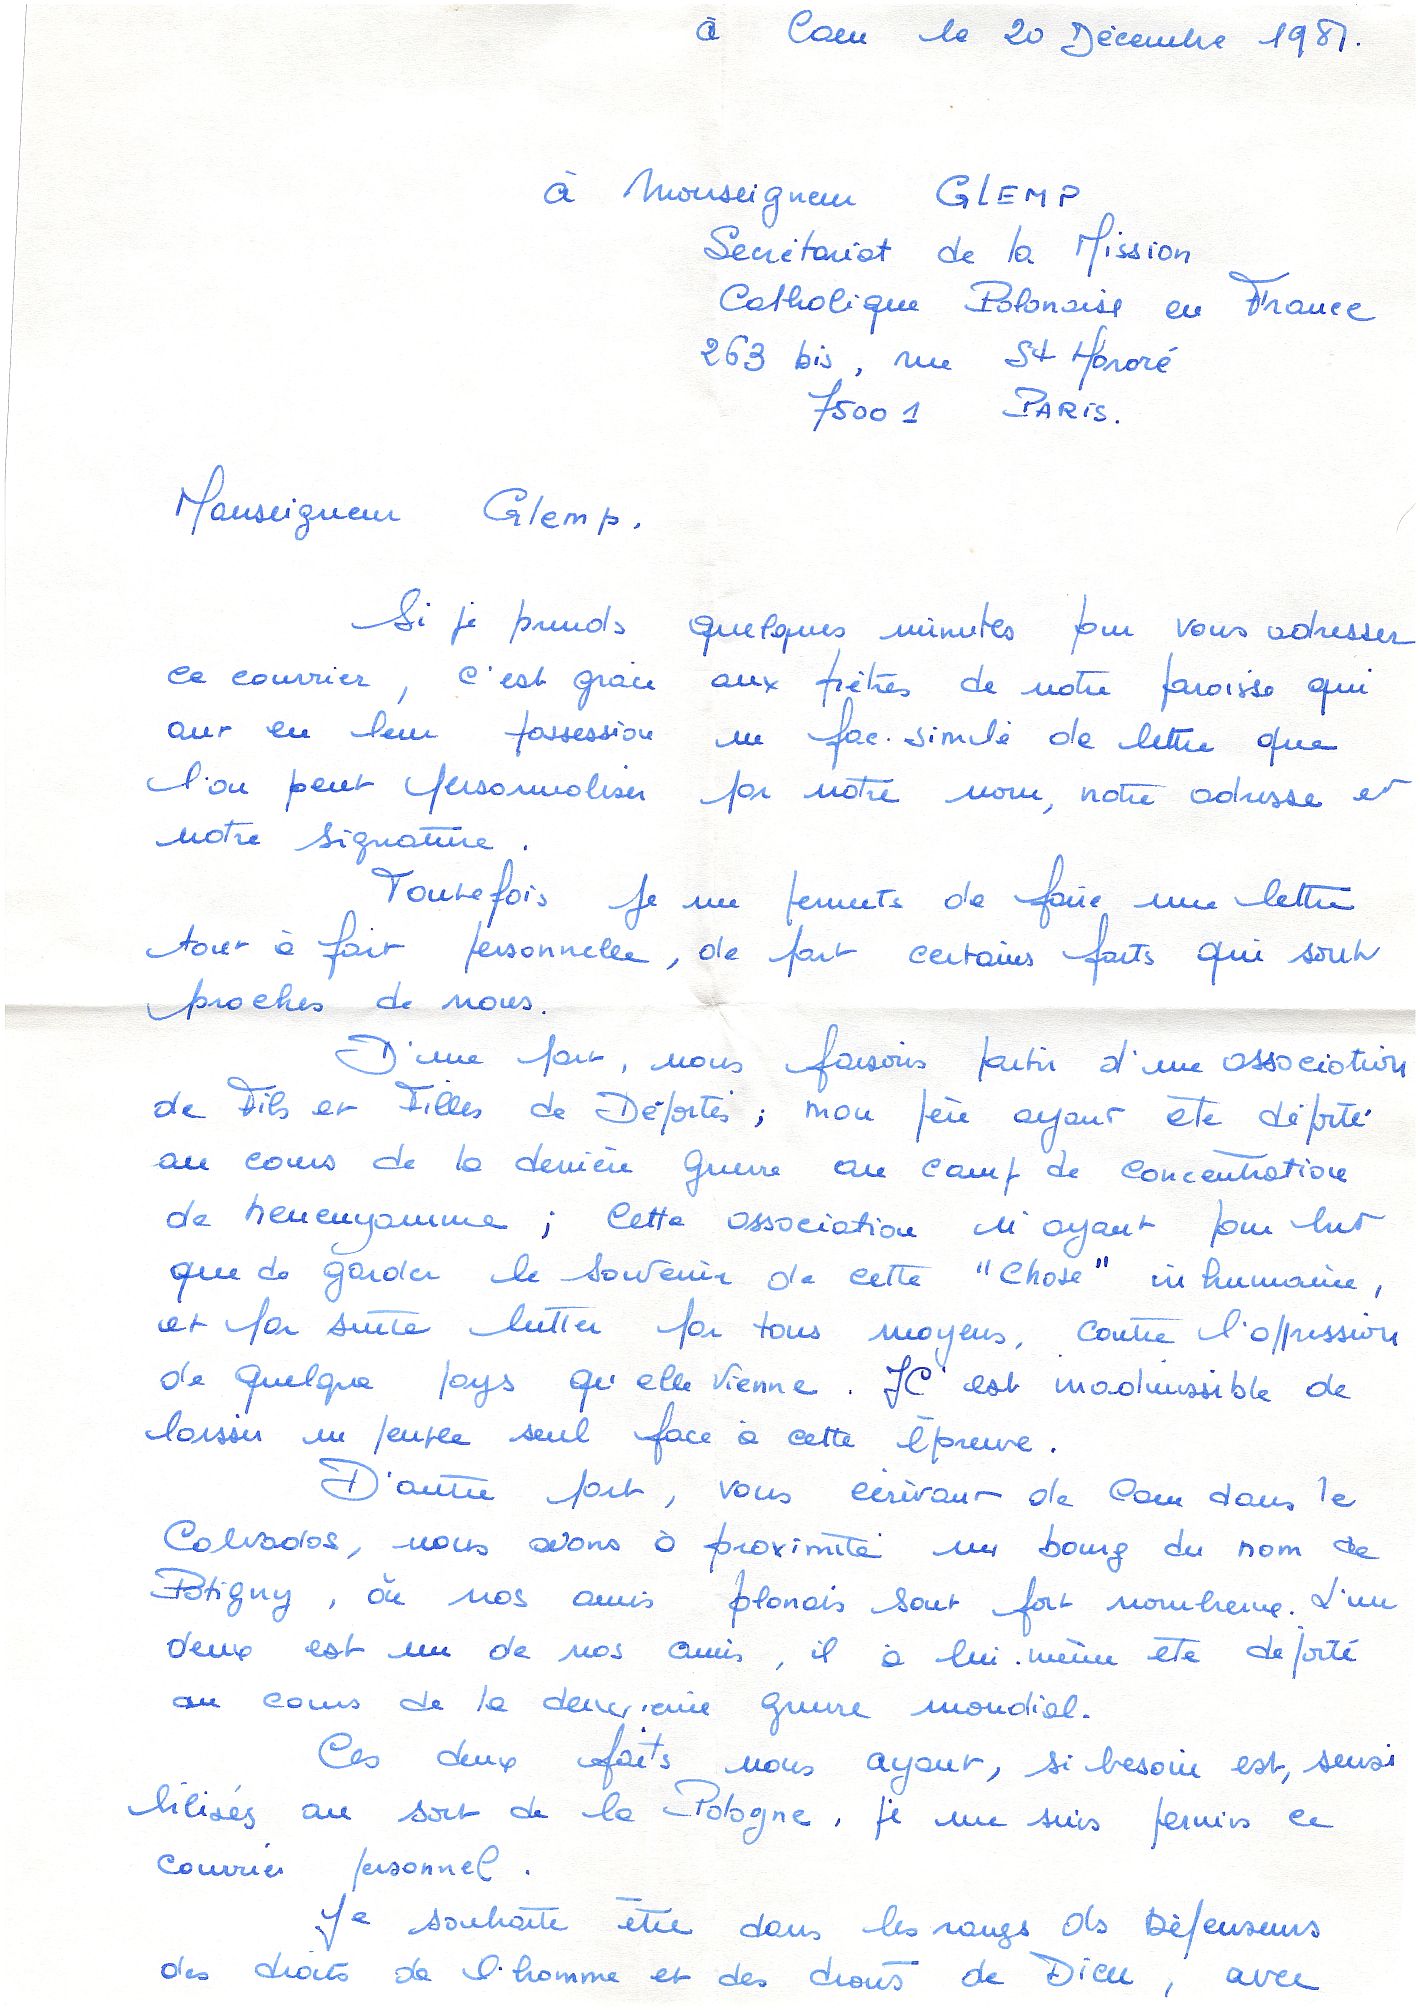 à Caen le 20 Décembre 1981.
à Monseigneur GLEMP
Secrétariat de la Mission
Catholique Polonaise en France
263 bis, rue St Honoré
75001 PARIS.
Monseigneur Glemp.
Si je prends quelques minutes pour vous adresser
ce courrier, c'est grâce aux prêtres de notre paroisse qui
ont en leur possession un fac-similé de lettre que
l'on peut personnaliser par notre nom, notre adresse et
notre signature.
Toutefois je me permets de faire une lettre
tout à fait personnelle, de part certains faits qui sont
proches de nous.
D'une part, nous faisons partir d'une association
de Fils et Filles de Déportés; mon père ayant été déporté
au cours de la dernière guerre au camp de concentration
de neuengamme; cette association n'ayant pour but
que de garder le souvenir de cette "Chose" inhumaine,
et par suite lutter par tous moyens, contre l'oppression
de quelque pays qu'elle vienne. IC'est inadmissible de
laisser un peuple seul face à cette épreuve.
D'autre part, vous écrivant de Caen dans le
Calvados, nous avons à proximité un bourg du nom de
Potigny, où nos amis plonais sont fort nombreux. L'un
deux est un de nos amis, il a lui-même été déporté
au cours de la deuxième guerre mondial.
Ces deux faits nous ayant, si besoin est, sensi
bilisés au sort de la Pologne, je me suis permis ce
courrier personnel.
Je souhaite être dans les rangs ds Défenseurs
des droits de l'homme et des droits de Dieu, avec